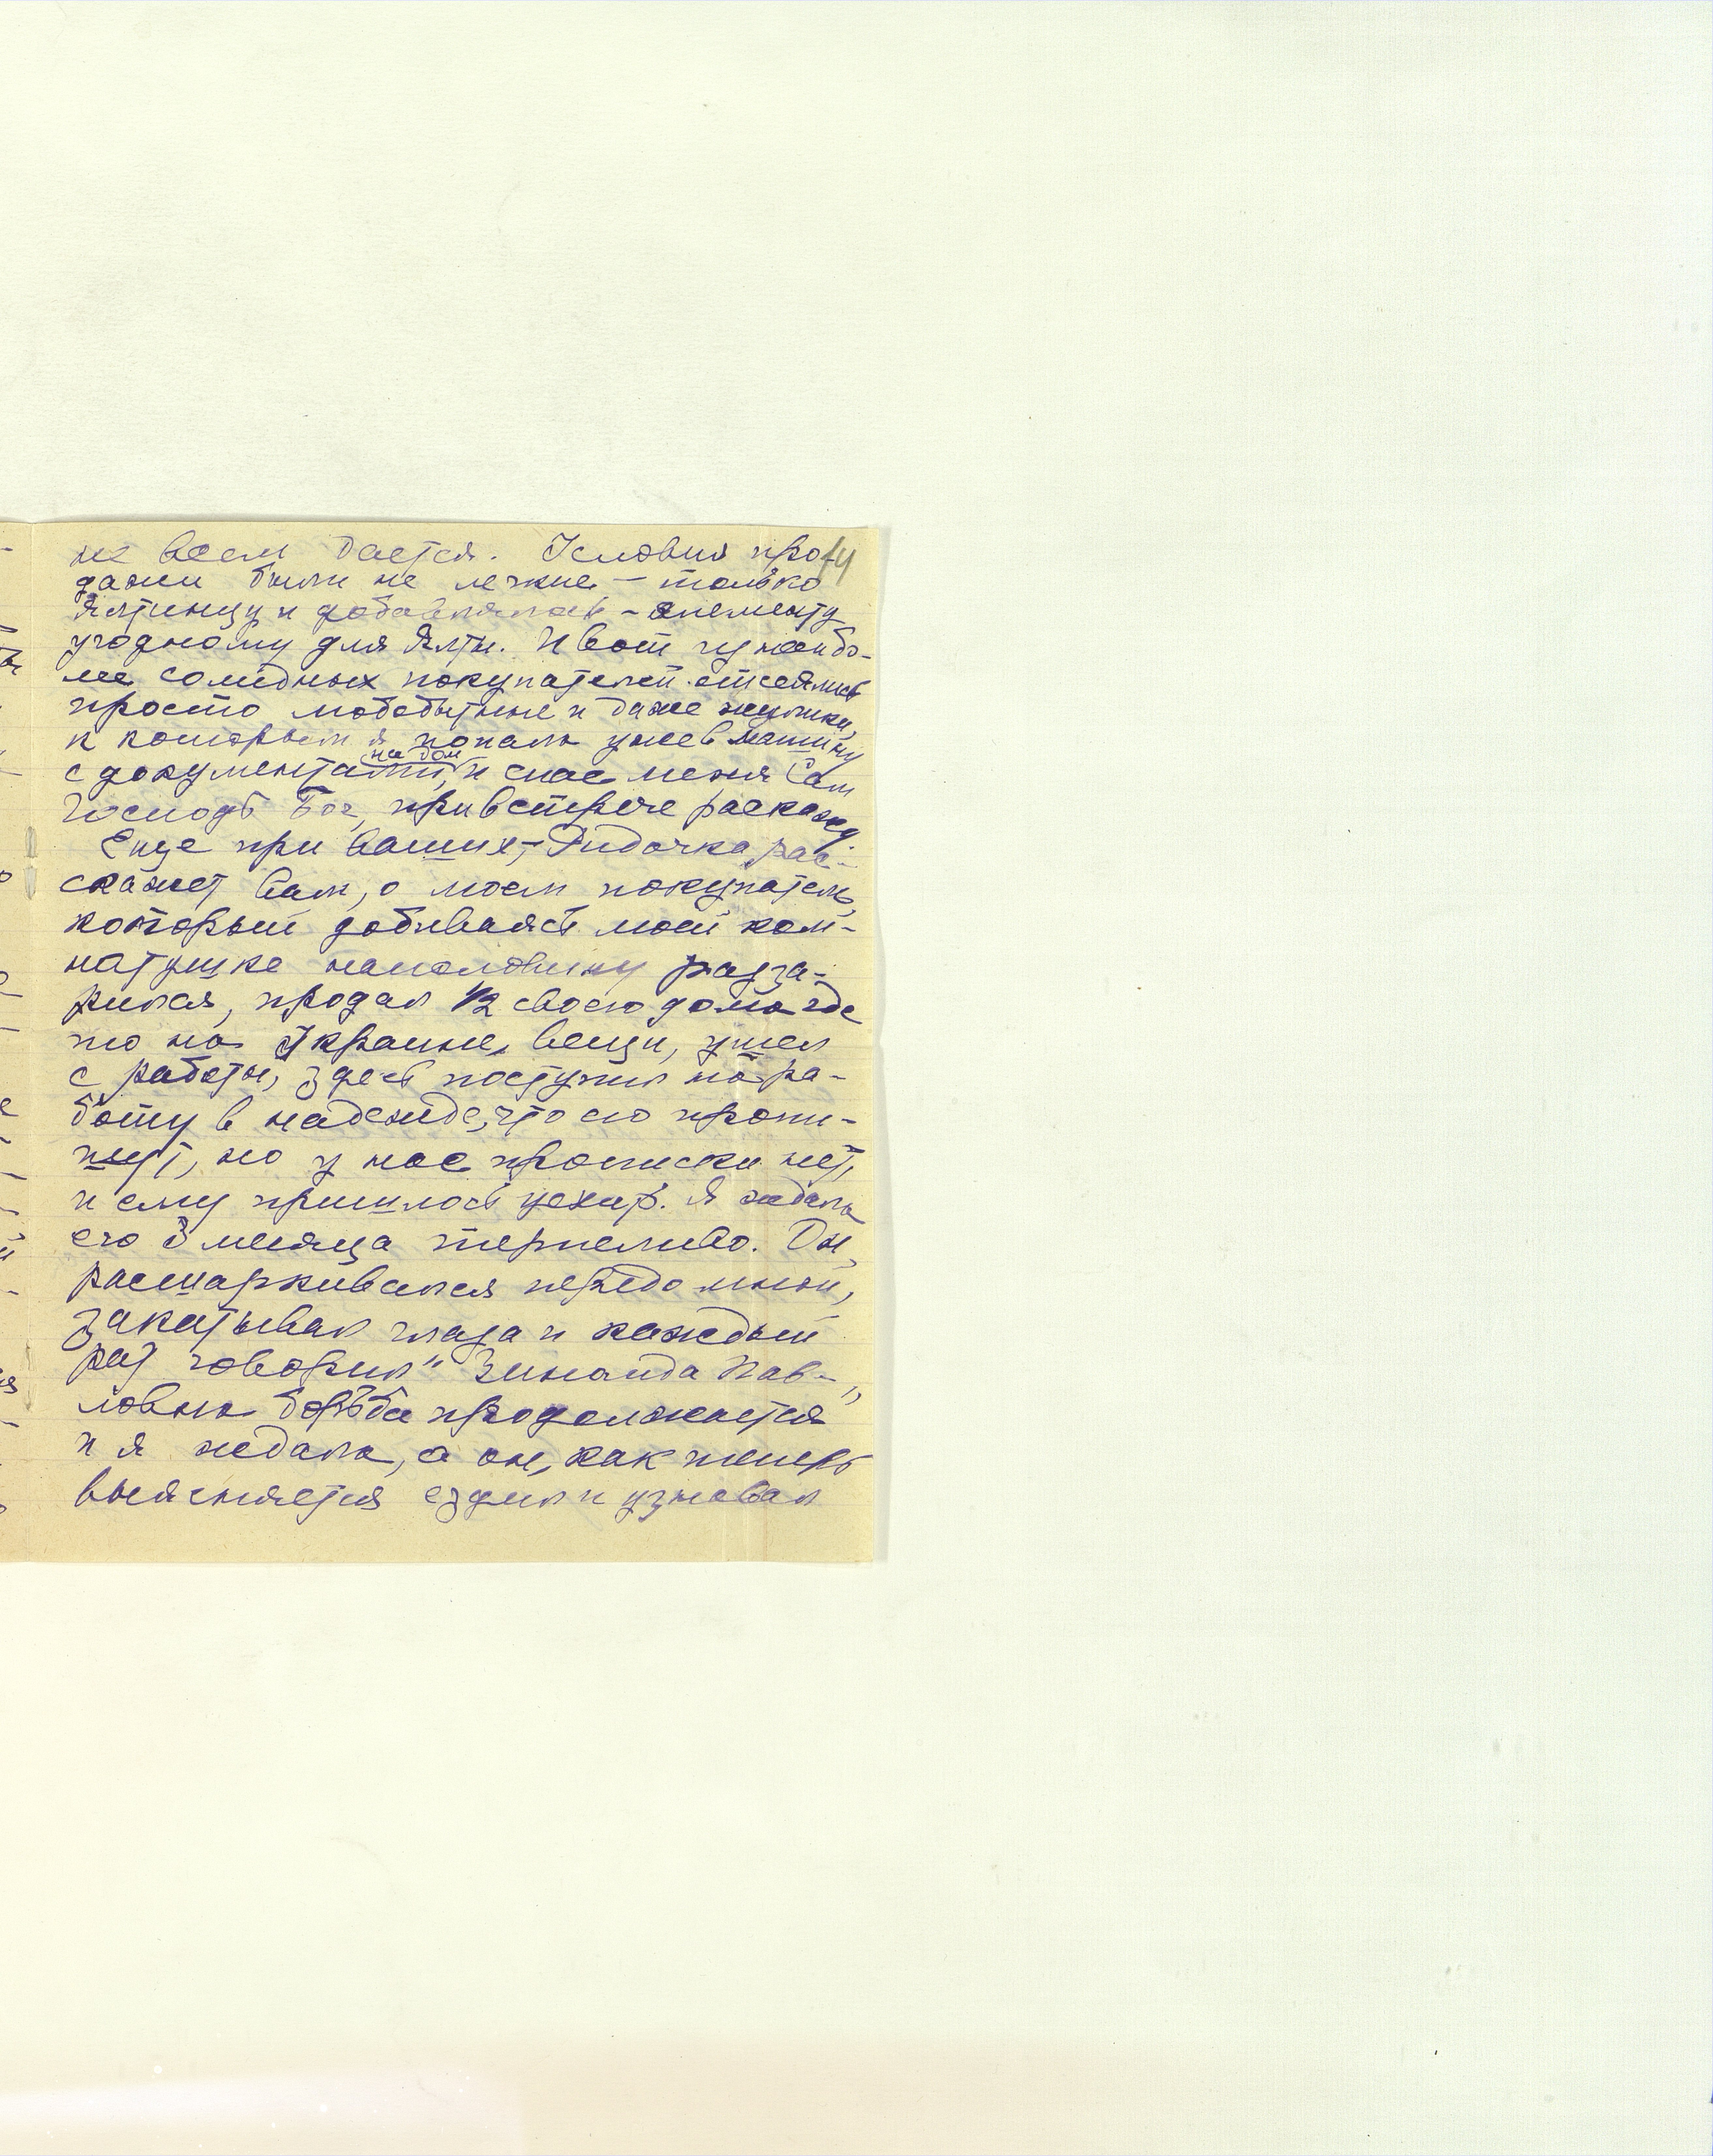 не всем дается. Условия про- 14
дажи были не легкие – только
Ялтинцу и добавлялось – элементу
угодному для Ялты. И вот из наибо-
лее солидных покупателей отсеялись
просто любобытные и даже жулики,
к которым я попала уже в машину
с документами на дом, и спас меня Сам
Господь Бог, при встрече раскажу
Еще при ваших, – Дидочка рас-
скажет Вам, о моем покупателе,
который добиваясь моей ком-
натушке наполовину раззо-
рился, продал 1/2 своего дома где
то на Украине, вещи, ушел
с работы, здесь поступил на ра-
боту в надежде, что его пропи-
шут, но у нас прописки нет,
и ему пришлось уехать. Я ждала
его 3 месяца терпеливо. Он,
расшаркивался передо мной,
закатывал глаза и каждый
раз говорил "Зинаида Пав-
ловна борьба продолжается"
и я ждала, а он, как теперь
выясняется ездил и узнавал